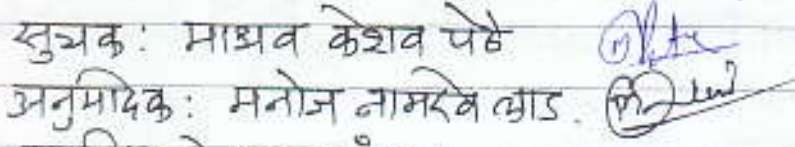 सुचक: माधव केशव पेठे
अनुमोदक: मनोज नामदेव लाड.